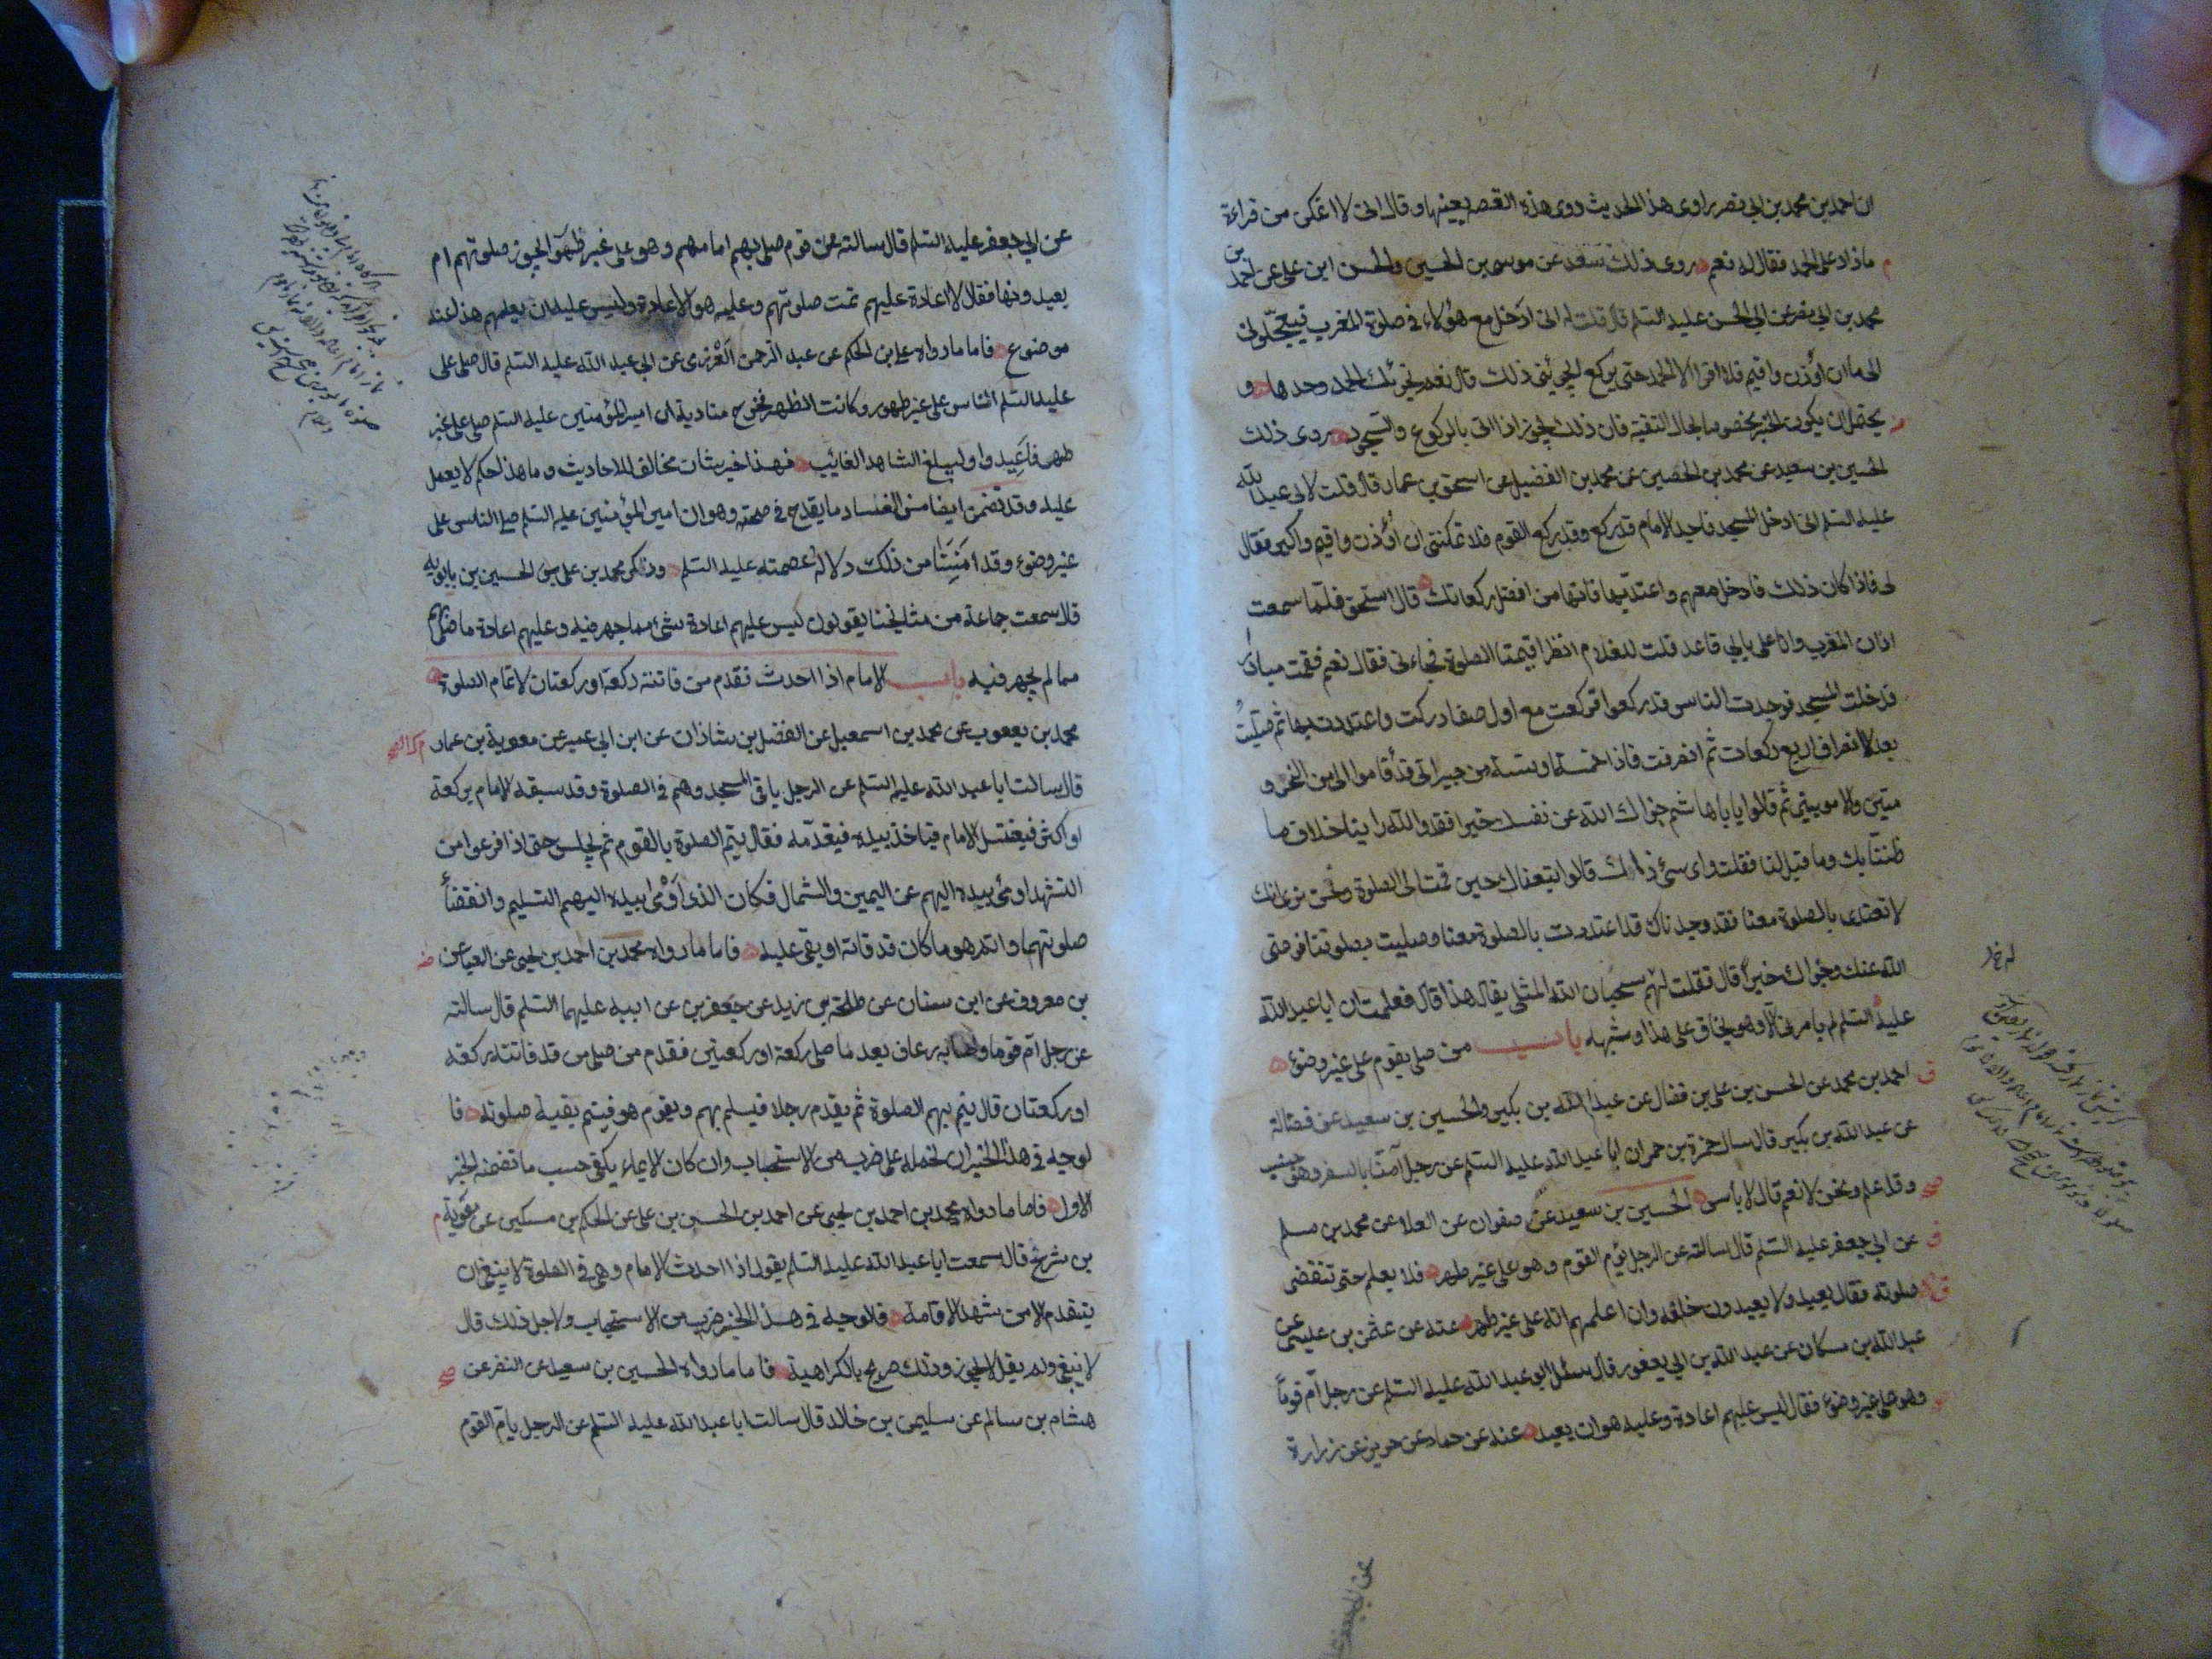 ان احمد بن محمد بن ابي نصر راوى هذا الحديث روى هذه القصه بعينها وقال انى لا اتمكن من قراءة
ما زاد على الحمد فقال له نعم روى ذلك سعد عن موسى بن الحسين والحسن ابن على عن احمد بن
محمد بن ابي نصر عن ابي الحسن عليه السلم قال قلت له انى ادخل مع هؤلاء فى صلوة المغرب فيعجّلونى
الى ما ان اؤذن واقيم فلا اقرا الا الحمد حتى يركع ايجزئنى ذلك قال نعم يجزئك الحمد وحدها و
يحتمل ان يكون الخبر مخصوصا بحال التقية فان ذلك يجوز اذا اتى بالركوع والسجود روى ذلك
الحسين بن سعيد عن محمد بن الحصين عن محمد بن الفضيل عن اسحق بن عمار قال قلت لابى عبد الله
عليه السلم انى ادخل المسجد فاجد الامام قد ركع وقد ركع القوم فلا تمكننى ان اؤذن واقيم واكبر فقال
لى فاذا كان ذلك فادخل معهم واعتد بها فانها من افضل ركعاتك قال اسحق فلما سمعت
اذان المغرب وانا على بابى قاعد قلت للغلام انظر اقيمت الصلوة فجاءنى فقال نعم فقمت مبادرا
فدخلت المسجد فوجدت الناس قد ركعوا فركعت مع اول صف ادركت واعتددت بها ثم صليت
بعد الانصراف اربع ركعات ثم انصرفت فاذا خمسة او ستة من جيرانى قد قاموا الى من المخزو
ميين والامويين ثم قالوا يا باهاشم جزاك الله عن نفسك خيرا فقد والله راينا خلاف ما
ظننا بك وما قيل لنا فقلت واى سئ ذلك قالوا تبعناك حين قمت الى الصلوة ونحن نرى انك
لا تعتدى بالصلوة معنا فقد وجدناك قد اعتددت بالصلوة معنا وصليت بصلوتنا فرضى
الله عنك وجزاك خيرا قال فقلت لهم سبحان الله المثلى يقال هذا قال فعلمت ان ابا عبد الله
عليه السلم لم يامرنى الا وهو يخاف على هذا وشبهه باب من صلى بقوم على غير وضوء
احمد بن محمد عن الحسن بن على بن فضال عن عبد الله بن بكير والحسين بن سعيد عن فضالة
عن عبد الله بن بكير قال سال حمزة بن حمران ابا عبد الله عليه السلم عن رجل امنا بالسفر وهو جنب
وقد علم ونحن لا نعم قال لا باس الحسين بن سعيد عن صفوان عن العلا عن محمد بن مسلم
عن ابى جعفر عليه السلم قال سالته عن الرجل يؤم القوم وهو على غير طهر فلا يعلم حتى تنقضى
صلوته فقال يعيد ولا يعيدون خلفه وان اعلمهم انه على غير طهر عنه عن عثمن بن عليسى عن
عبد الله بن مسكان عن عبد الله بن ابى يعفور قال سئل ابو عبد الله عليه السلم عن رجل ام قوما
وهو على غير وضوء فقال ليس عليهم اعادة وعليه هو ان يعيد عنه عن حماد عن حريز عن زرارة
عن ابى جعفر عليه السلم قال سالته عن قوم صلى بهم امامهم وهو على غير طهر اتجوز صلوتهم ام
يعيدونها فقال لا اعادة عليهم تمت صلوتهم وعليه هو الاعادة وليس عليه ان يعلمهم هذا عنه
موضوع فاما ما رواه على بن الحكم عن عبد الرحمن العرزمى عن ابى عبد الله عليه السلم قال صلى على
عليه السلم الناس على غير طهور وكانت الظهر فخرج مناديه ان امير المؤمنين عليه السلم صلى على غير
طهر فاعيدوا وليبلغ الشاهد الغائب فهذا خبر شاذ مخالف للاحاديث وما هذا حكمه لا يعمل
عليه وقد تضمن ايضا من الفساد ما يقدح فى صحته وهو ان امير المؤمنين عليه السلم صلى الناس على
غير وضوء وقد امنتنا من ذلك دلالة عصمته عليه السلم وذكر محمد بن على بن الحسين بن بابويه
قد سمعت جماعة من مشايخنا يقولون ليس عليهم اعادة شئ مما جهر فيه وعليهم اعادة ما صلى بهم
مما لم يجهر فيه باب الامام اذا احدث فقدم من فاتته ركعة او ركعتان لاتمام الصلوة
محمد بن يعقوب عن محمد بن اسمعيل عن الفضل بن شاذان عن ابن ابى عمير عن معوية بن عمار
قال سالت ابا عبد الله عليه السلم عن الرجل ياتى المسجد وهم فى الصلوة وقد سبقه الامام بركعة
او اكثر فيعتل الامام فياخذ بيده فيقدمه فقال يتم الصلوة بالقوم ثم يجلس حتى اذا فرغوا من
التشهد اومئ بيده اليهم عن اليمين والشمال فكان الذى اومئ بيده اليهم التسليم وانقضاء
صلوتهم واتم هو ما كان قد فاته او بقى عليه فاما ما رواه محمد بن احمد بن يحيى عن العباس
بن معروف عن ابن سنان عن طلحة بن زيد عن جعفر بن عن ابيه عليهما السلم قال سالته
عن رجل ام قوما واصابه رعاف بعد ما صلى ركعة او ركعتين فقدم من صلى من قد فاتته ركعة
او ركعتان قال يتم بهم الصلوة ثم يقدم رجلا فيسلم بهم ويقوم هو فيتم بقية صلوته فا
لوجه فى هذا الخبر ان نحمله على ضرب من الاستحباب وان كان الايماء يكفى حسب ما تضمنه الخبر
الاول فاما ما رواه محمد بن احمد بن يحيى عن احمد بن الحسين بن على عن الحكم بن مسكين عن معوية
بن شريح قال سمعت ابا عبد الله عليه السلم يقول اذا احدث الامام وهو فى الصلوة لا ينبغى ان
يتقدم الا من شهد الاقامة فالوجه فى هذا الخبر ضرب من الاستحباب ولاجل ذلك قال
لا ينبغى ولم يقل لا يجوز وذلك صريح بالكراهية فاما ما رواه الحسين بن سعيد عن النضر عن
هشام بن سالم عن سليمن بن خالد قال سالت ابا عبد الله عليه السلم عن الرجل يام القوم